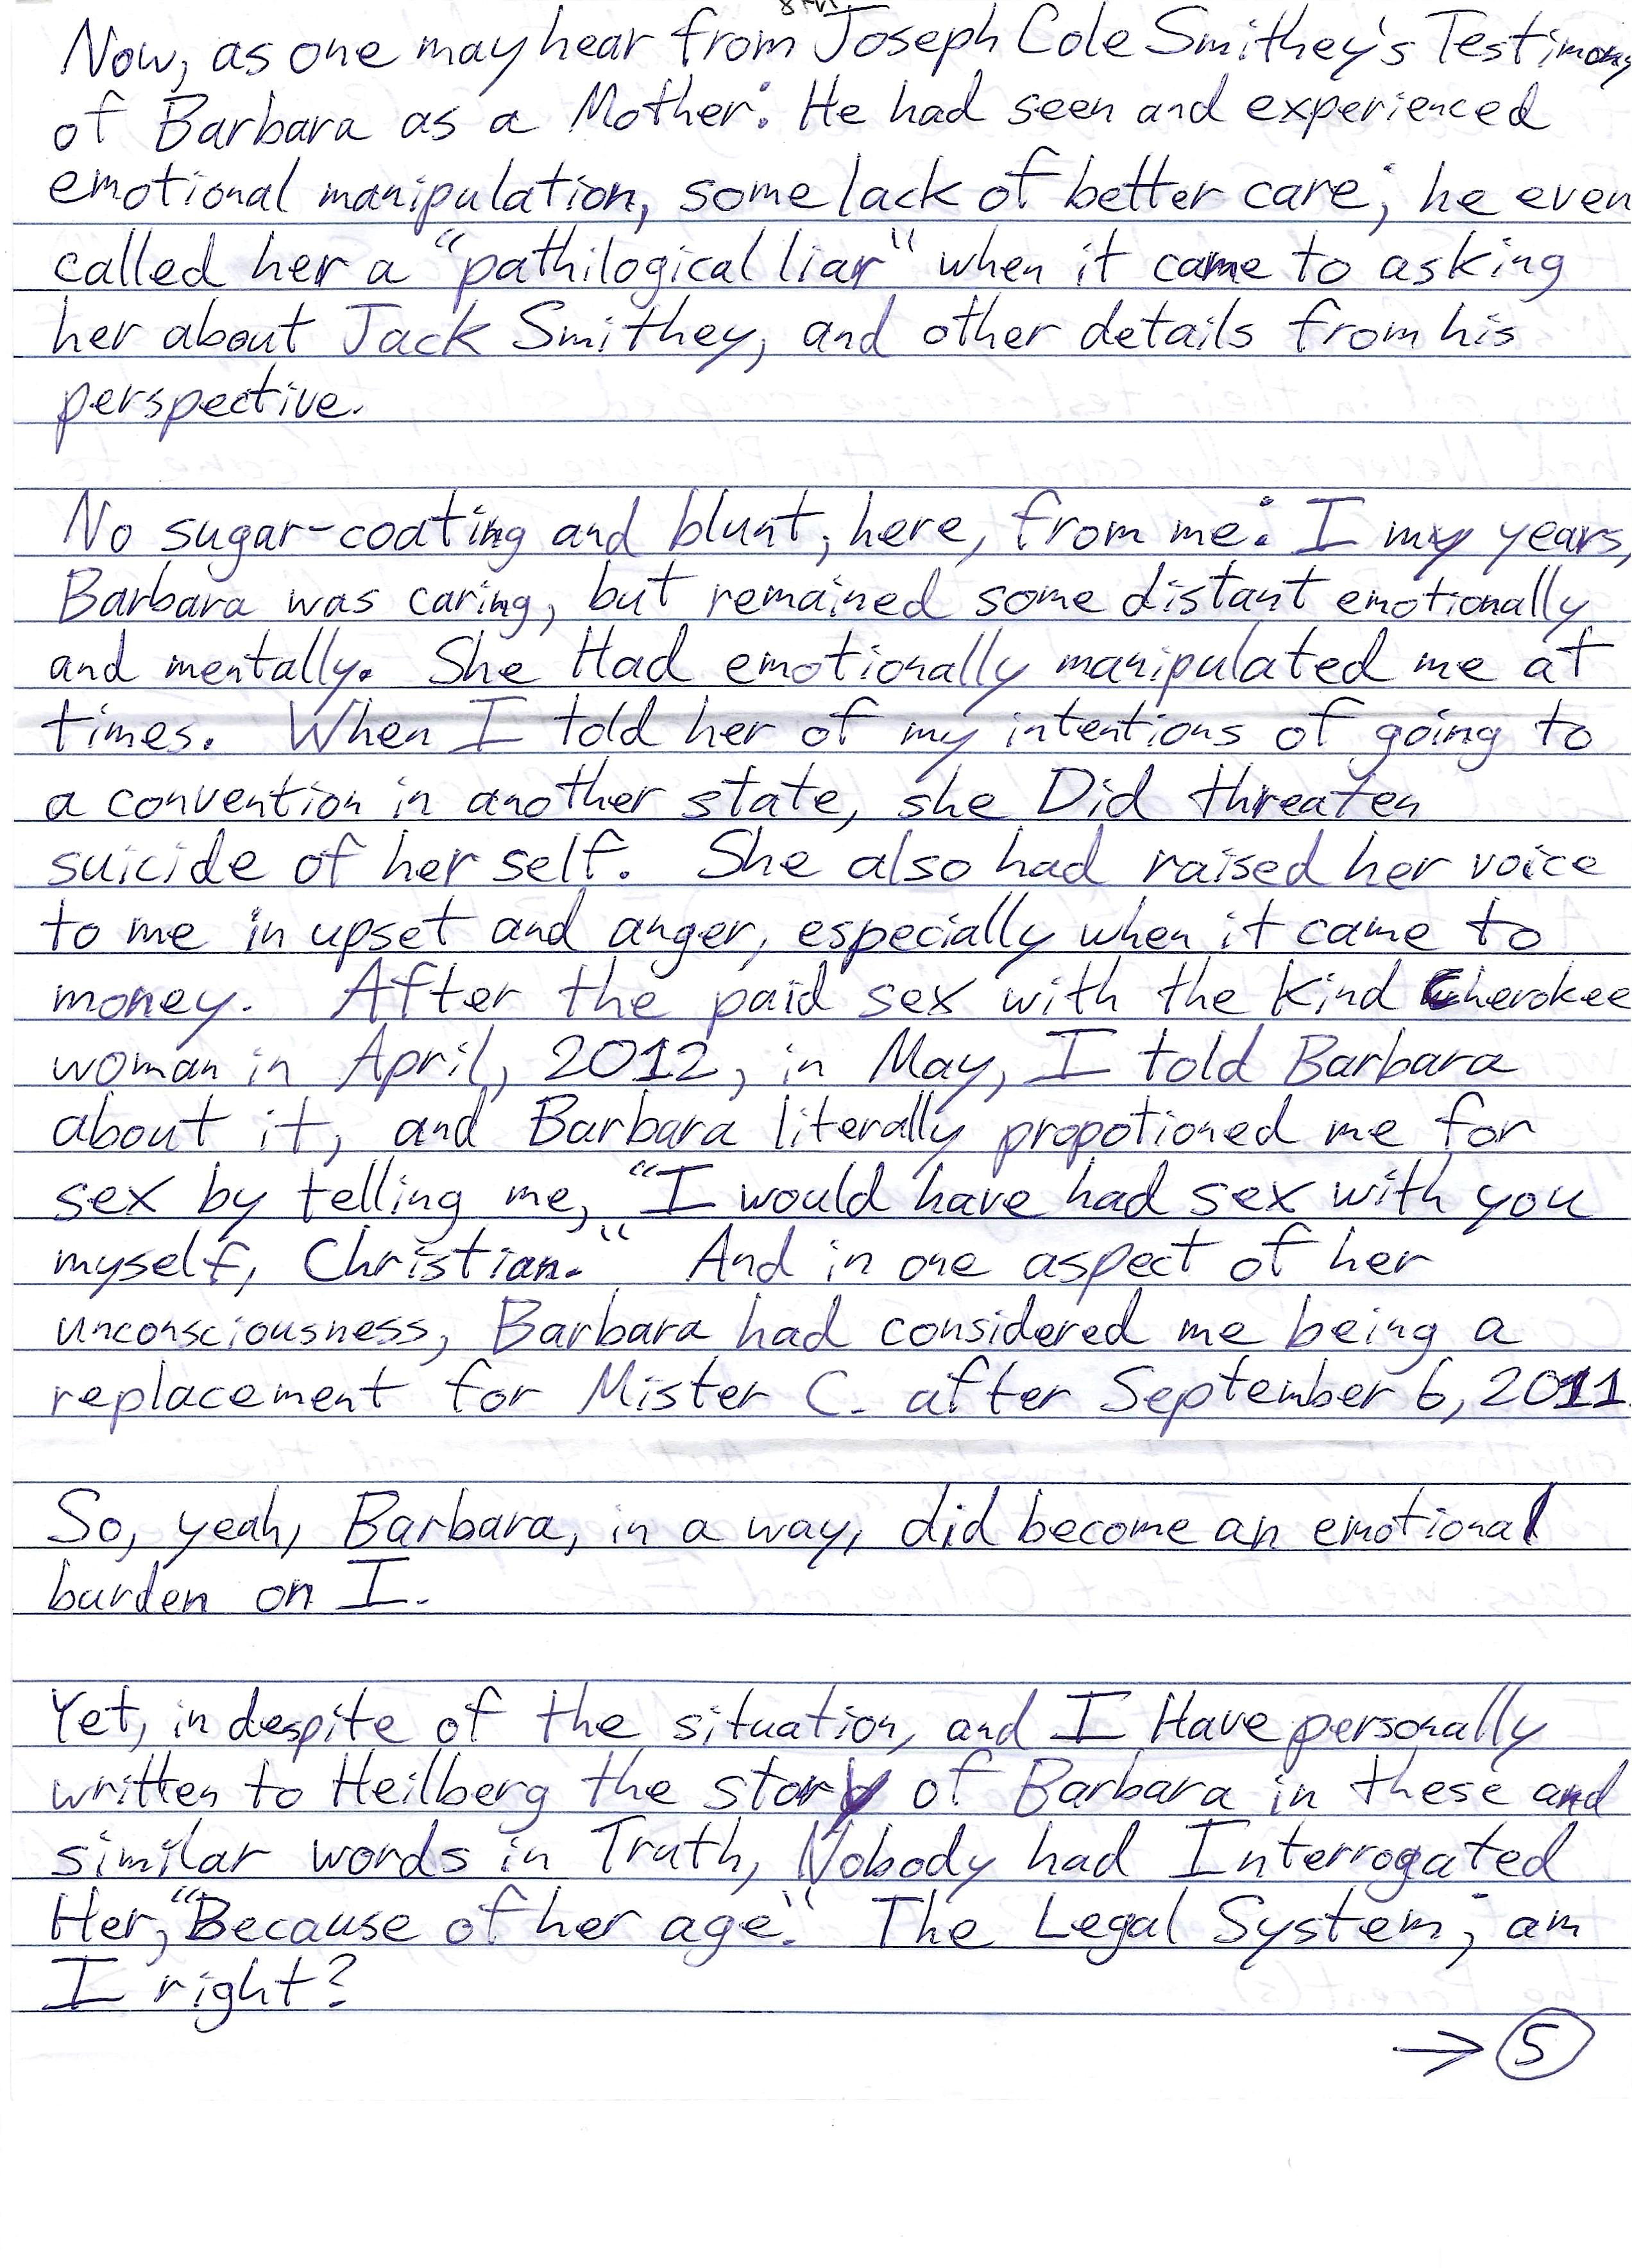 Now, as one may hear from Joseph Cole Smithey's Testimony
of Barbara as a Mother: He had seen and experienced
emotional manipulation, some lack of better care; he even
called her a "pathilogical liar" when it came to asking
her about Jack Smithey, and other details from his
perspective.
No sugar-coating and blunt, here, from me: I my years,
Barbara was caring, but remained some distant emotionally
and mentally. She Had emotionally manipulated me at
times. When I told her of my intentions of going to
a convention in another state, she Did threaten
suicide of her self. She also had raised her voice
to me in upset and anger, especially when it came to
money. After the paid sex with the kind Cherokee
woman in April, 2012, in May, I told Barbara
about it, and Barbara literally propotioned me for
sex by telling me, "I would have had sex with you
myself, Christian." And in one aspect of her
unconsciousness, Barbara had considered me being a
replacement for Mister C. after September 6, 2011.
So, yeah, Barbara, in a way, did become an emotional
burden on I.
Yet, in despite of the situation, and I Have personally
written to Heilberg the story of Barbara in these and
similar words in Truth, Nobody had Interrogated
Her, "Because of her age." The Legal System; am
I right?
→ 5